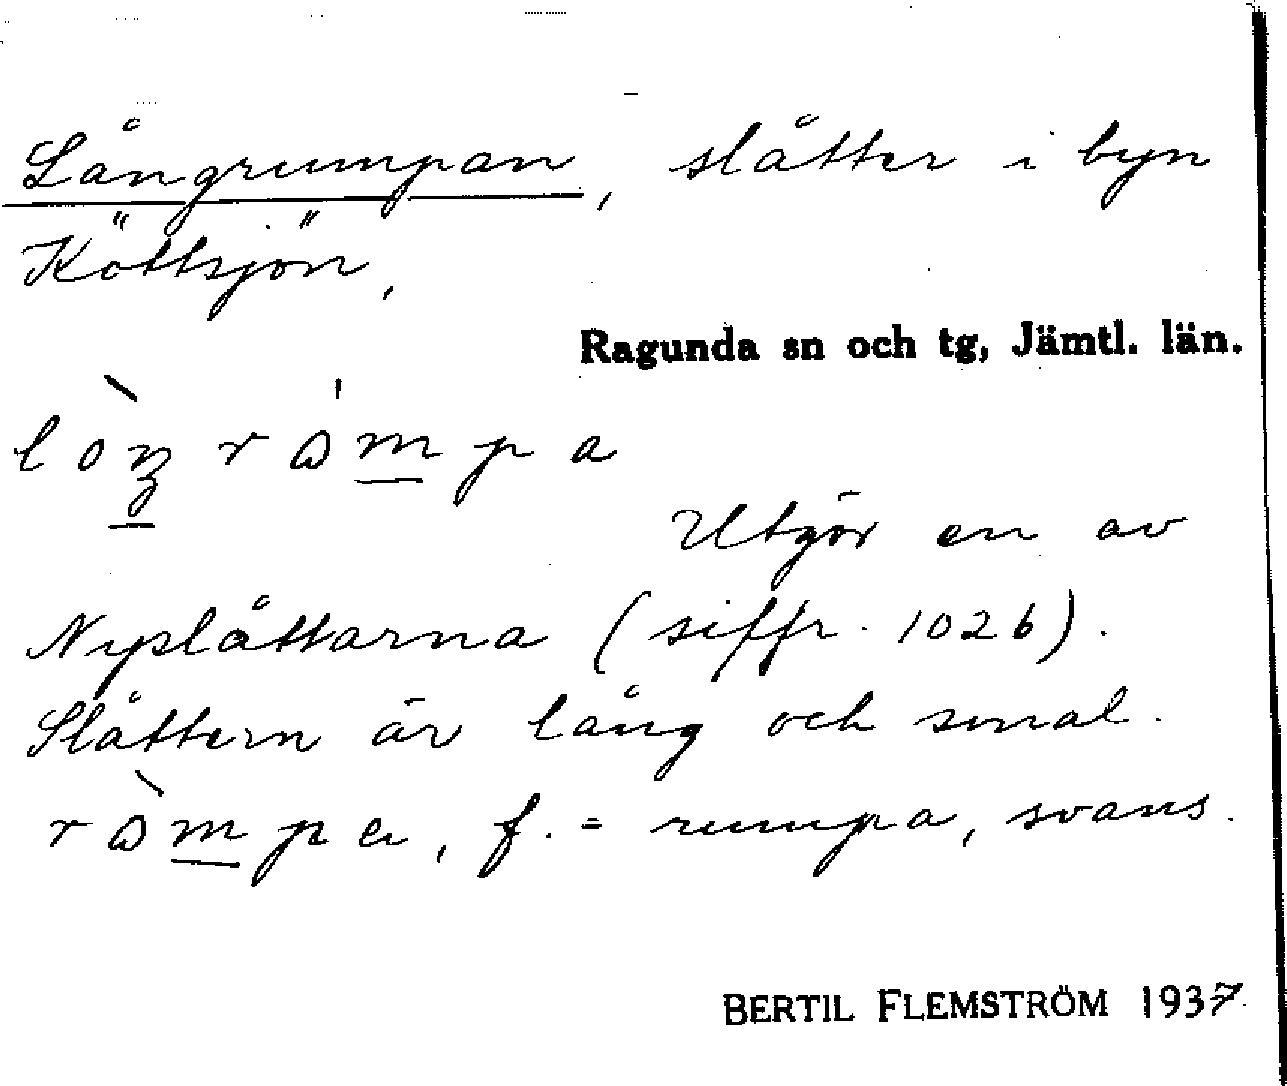 Långrumpan, slåtter i byn
Köttsjön,
Ragunda sn och tg, Jämtl. län.
Utgör en av
Nyslåttarna (siffr. 1026).
Slåttern är lång och smal.
f. = rumpa, svans.
BERTIL FLEMSTRÖM 1937